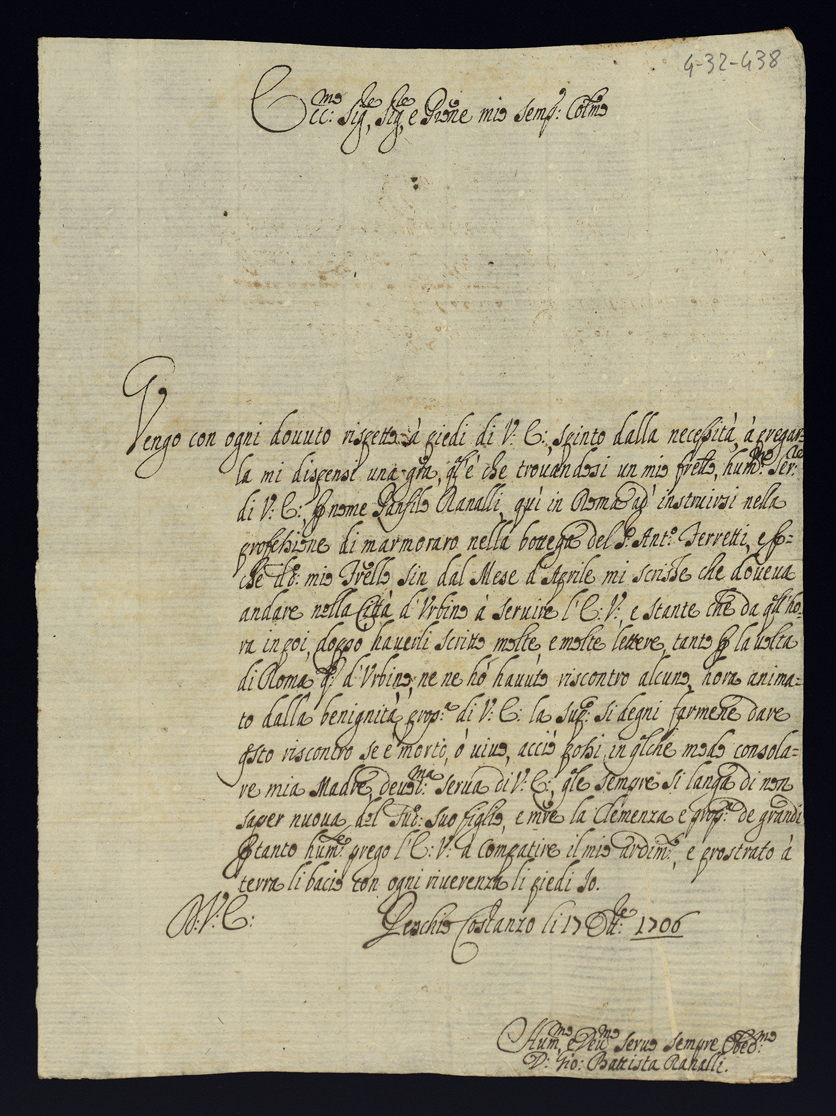 4-32-438
Ecc:mo Sig:re, Sig:re, e Prone mio semp: Colmo
Vengo con ogni douuto rispetto à piedi di V: E:, spinto dalla necessità, à pregar=
la mi dispensi una gra, qle è che trouandosi un mio frello, hum:mo Ser:re
di V: E:, p nome Panfilo Ranalli, quì in Roma ad instruirsi nella
professione di marmoraro nella bottega del S:r Ant:o Ferretti, e p=
che d:o mio Frello sin dal Mese d'Aprile mi scrisse che doueua
andare nella Città d'Vrbino à seruire l'E: V:, e stante che da qll'ho=
ra in poi, doppo hauerli scritto molte, e molte lettere, tanto p la uolta
di Roma, q:to d'Vrbino, ne ne hò hauuto riscontro alcuno, hora anima=
to dalla benignità prop:a di V: E: la sup:co si degni farmene dare
qsto riscontro se è morto, ò uiuo, acciò possi in qlche modo consola=
re mia Madre deuot:ma serua di V: E:, qle sempre si langa di non
saper nuoua del suo figlio, e mre la Clemenza è prop:a de grandi
ptanto hum:te prego l'E: V: à compatire il mio ardim:to, e prostrato à
terra li bacio con ogni riuerenza li piedi Io.
D: V: E:
Pescho Costanzo li 17 1706
Hum:mo, e Deu:mo seruo sempre Obed:mo
D: Gio: Battista Ranalli.